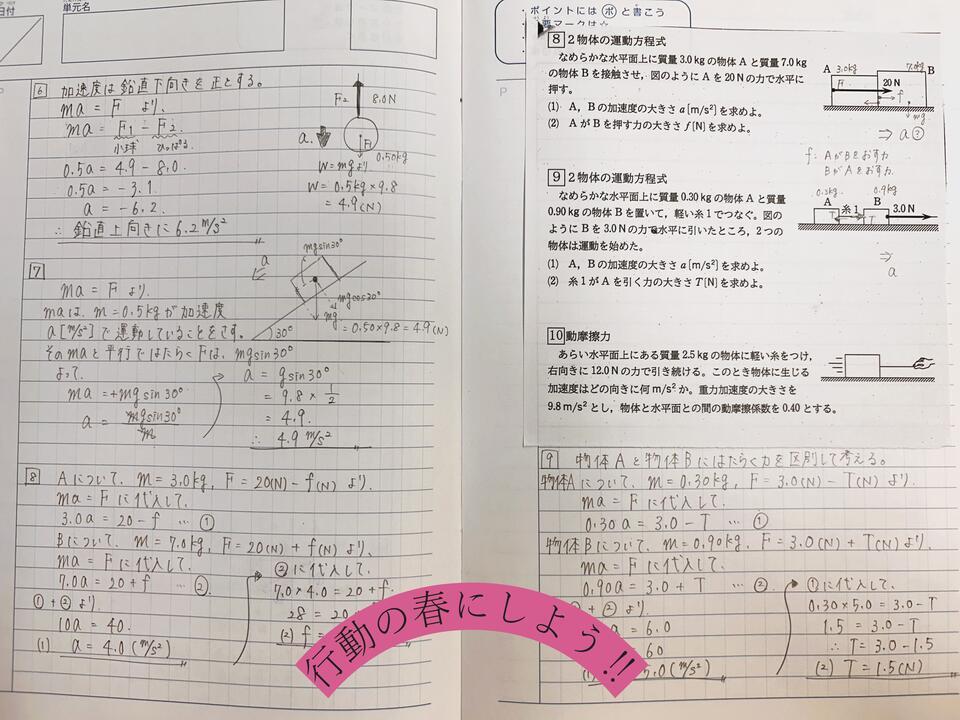 単元名
ポイントには ポ と書こう
6 加速度は鉛直下向きを正とする。
ma = F より、
ma = F₁ - F₂
小球
0.5a = 4.9 - 8.0
0.5a = -3.1
a = -6.2
∴ 鉛直上向きに 6.2 m/s²
F₂ 8.0N
a
F₁
0.50kg
W = mgより
W = 0.5kg×9.8
= 4.9(N)
7
ma = F より、
maは、m = 0.5kgが加速度
a[m/s²]で運動していることをさす。
そのmaと平行ではたらくFは、mgsin30°
よって、
ma = +mgsin30°
a = mgsin30°/m
a = gsin30°
= 9.8 × 1/2
= 4.9
∴ 4.9 m/s²
a
mgsin30°
mgcos30°
mg = 0.50×9.8 = 4.9(N)
30°
8 Aについて、m = 3.0kg, F = 20(N) - f(N) より、
ma = F に代入して、
3.0a = 20 - f … ①
Bについて、m = 7.0kg, F = 20(N) + f(N) より、
ma = F に代入して、
7.0a = 20 + f … ②
①+②より
10a = 40
(1) a = 4.0(m/s²)
②に代入して、
7.0×4.0 = 20 + f
28 = 20
(2) f =
8 2物体の運動方程式
なめらかな水平面上に質量3.0kgの物体Aと質量7.0kg
の物体Bを接触させ，図のようにAを20Nの力で水平に
押す。
(1) A，Bの加速度の大きさa[m/s²]を求めよ。
(2) AがBを押す力の大きさf[N]を求めよ。
A 3.0kg 7.0kg B
F 20N
f
mg
⇒ a ?
f: AがBをおす力
BがAをおす力
9 2物体の運動方程式
なめらかな水平面上に質量0.30kgの物体Aと質量
0.90kgの物体Bを置いて，軽い糸1でつなぐ。図の
ようにBを3.0Nの力で水平に引いたところ，2つの
物体は運動を始めた。
(1) A，Bの加速度の大きさa[m/s²]を求めよ。
(2) 糸1がAを引く力の大きさT[N]を求めよ。
0.3kg 0.9kg
A 糸1 B 3.0N
T T
⇒
a
10 動摩擦力
あらい水平面上にある質量2.5kgの物体に軽い糸をつけ，
右向きに12.0Nの力で引き続ける。このとき物体に生じる
加速度はどの向きに何m/s²か。重力加速度の大きさを
9.8m/s²とし，物体と水平面との間の動摩擦係数を0.40とする。
9 物体Aと物体Bにはたらく力を区別して考える。
物体Aについて、m = 0.30kg, F = 3.0(N) - T(N) より、
ma = F に代入して、
0.30a = 3.0 - T … ①
物体Bについて、m = 0.90kg, F = 3.0(N) + T(N) より、
ma = F に代入して、
0.90a = 3.0 + T … ②
+② より
a = 6.0
(1)
.0(m/s²)
①に代入して、
0.30×5.0 = 3.0 - T
1.5 = 3.0 - T
∴ T = 3.0 - 1.5
(2) T = 1.5(N)
行動の春にしよう!!